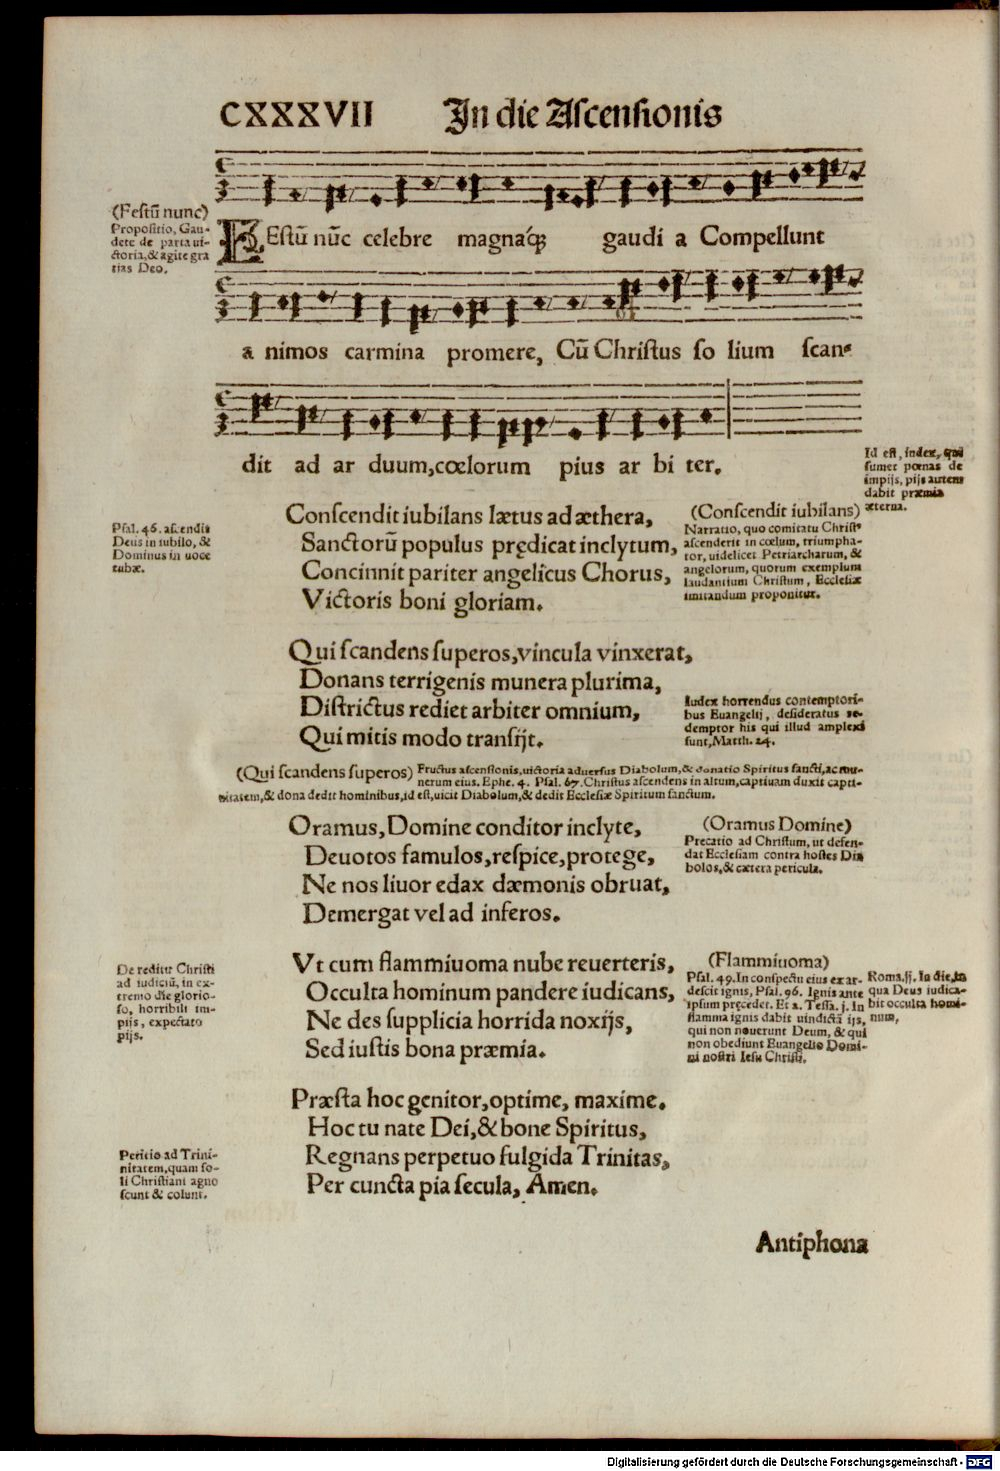 CXXXVII In die Ascensionis
(Festū nunc)
Propositio, Gau-
dete de parta ui-
ctoria, & agite gra
tias Deo.
FEstū nūc celebre magnaq́; gaudi a Compellunt
a nimos carmina promere, Cū Christus so lium scan-
dit ad ar duum, cœlorum pius ar bi ter.
Id est, index, qui
sumet pœnas de
impijs, pijs autem
dabit præmia
æterna.
Psal. 46. ascendit
Deus in iubilo, &
Dominus in uoce
tubæ.
Conscendit iubilans lætus ad æthera,
Sanctorū populus prędicat inclytum,
Concinnit pariter angelicus Chorus,
Victoris boni gloriam.
(Conscendit iubilans)
Narratio, quo comitatu Christ⁹
ascenderit in cœlum, triumpha-
tor, uidelicet Petriarcharum, &
angelorum, quorum exemplum
laudantium Christum, Ecclesiæ
imitandum proponitur.
Qui scandens superos, vincula vinxerat,
Donans terrigenis munera plurima,
Districtus rediet arbiter omnium,
Qui mitis modo transijt.
Iudex horrendus contemptori-
bus Euangelij, desideratus re-
demptor his qui illud amplexi
sunt, Matth. 24.
(Qui scandens superos) Fructus ascensionis, uictoria aduersus Diabolum, & donatio Spiritus sancti, ac mu-
nerum eius. Ephe. 4. Psal. 67. Christus ascendens in altum, captiuam duxit capti-
uitatem, & dona dedit hominibus, id est, uicit Diabolum, & dedit Ecclesiæ Spiritum sanctum.
Oramus, Domine conditor inclyte,
Deuotos famulos, respice, protege,
Ne nos liuor edax dæmonis obruat,
Demergat vel ad inferos.
(Oramus Domine)
Precatio ad Christum, ut defen-
dat Ecclesiam contra hostes Dia
bolos, & cætera pericula.
De reditu Christi
ad iudiciū, in ex-
tremo die glorio-
so, horribili im-
pijs, expectato
pijs.
Vt cum flammiuoma nube reuerteris,
Occulta hominum pandere iudicans,
Ne des supplicia horrida noxijs,
Sed iustis bona præmia.
(Flammiuoma)
Psal. 49. In conspectu eius exar-
descit ignis, Psal. 96. Ignis ante
ipsum pręcedet. Et 2. Tessa. j. In
flamma ignis dabit uindictā ijs,
qui non nouerunt Deum, & qui
non obediunt Euangelio Domi-
ni nostri Iesu Christi.
Roma. ij. In die, in
qua Deus iudica-
bit occulta homi-
num,
Præsta hoc genitor, optime, maxime.
Hoc tu nate Dei, & bone Spiritus,
Regnans perpetuo fulgida Trinitas,
Per cuncta pia secula, Amen.
Petitio ad Trini-
nitatem, quam so-
li Christiani agno
scunt & colunt.
Antiphona
Digitalisierung gefördert durch die Deutsche Forschungsgemeinschaft - DFG